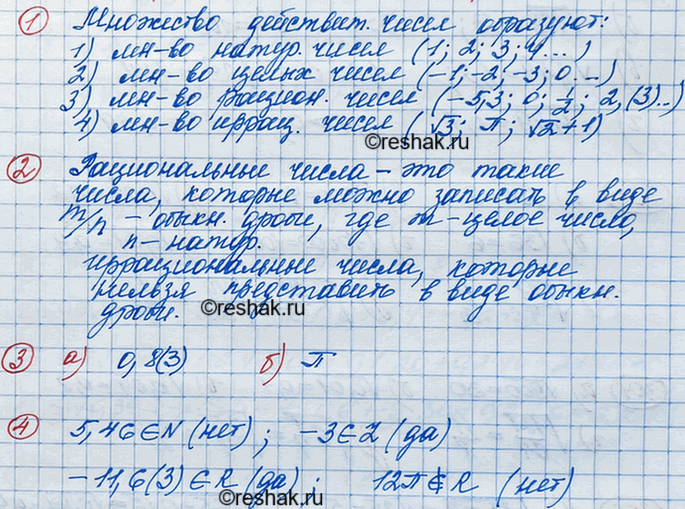 1 Множество действит. чисел образуют:
1) мн-во натур. чисел (1; 2; 3; 4...)
2) мн-во целых чисел (-1; -2; -3; 0...)
3) мн-во рацион. чисел (-5,3; 0; 1/2; 2,(3)..)
4) мн-во иррац. чисел (√3; π; √2+1)
©reshak.ru
2 Рациональные числа – это такие
числа, которые можно записать в виде
m/n – обыкн. дроби, где m – целое число,
n – натур.
иррациональные числа, которые
нельзя представить в виде обыкн.
дроби.
©reshak.ru
3 а) 0,8(3) б) π
4 5,46 ∈ N (нет); -3 ∈ Z (да)
-11,6(3) ∈ R (да); 12π ∉ R (нет)
©reshak.ru